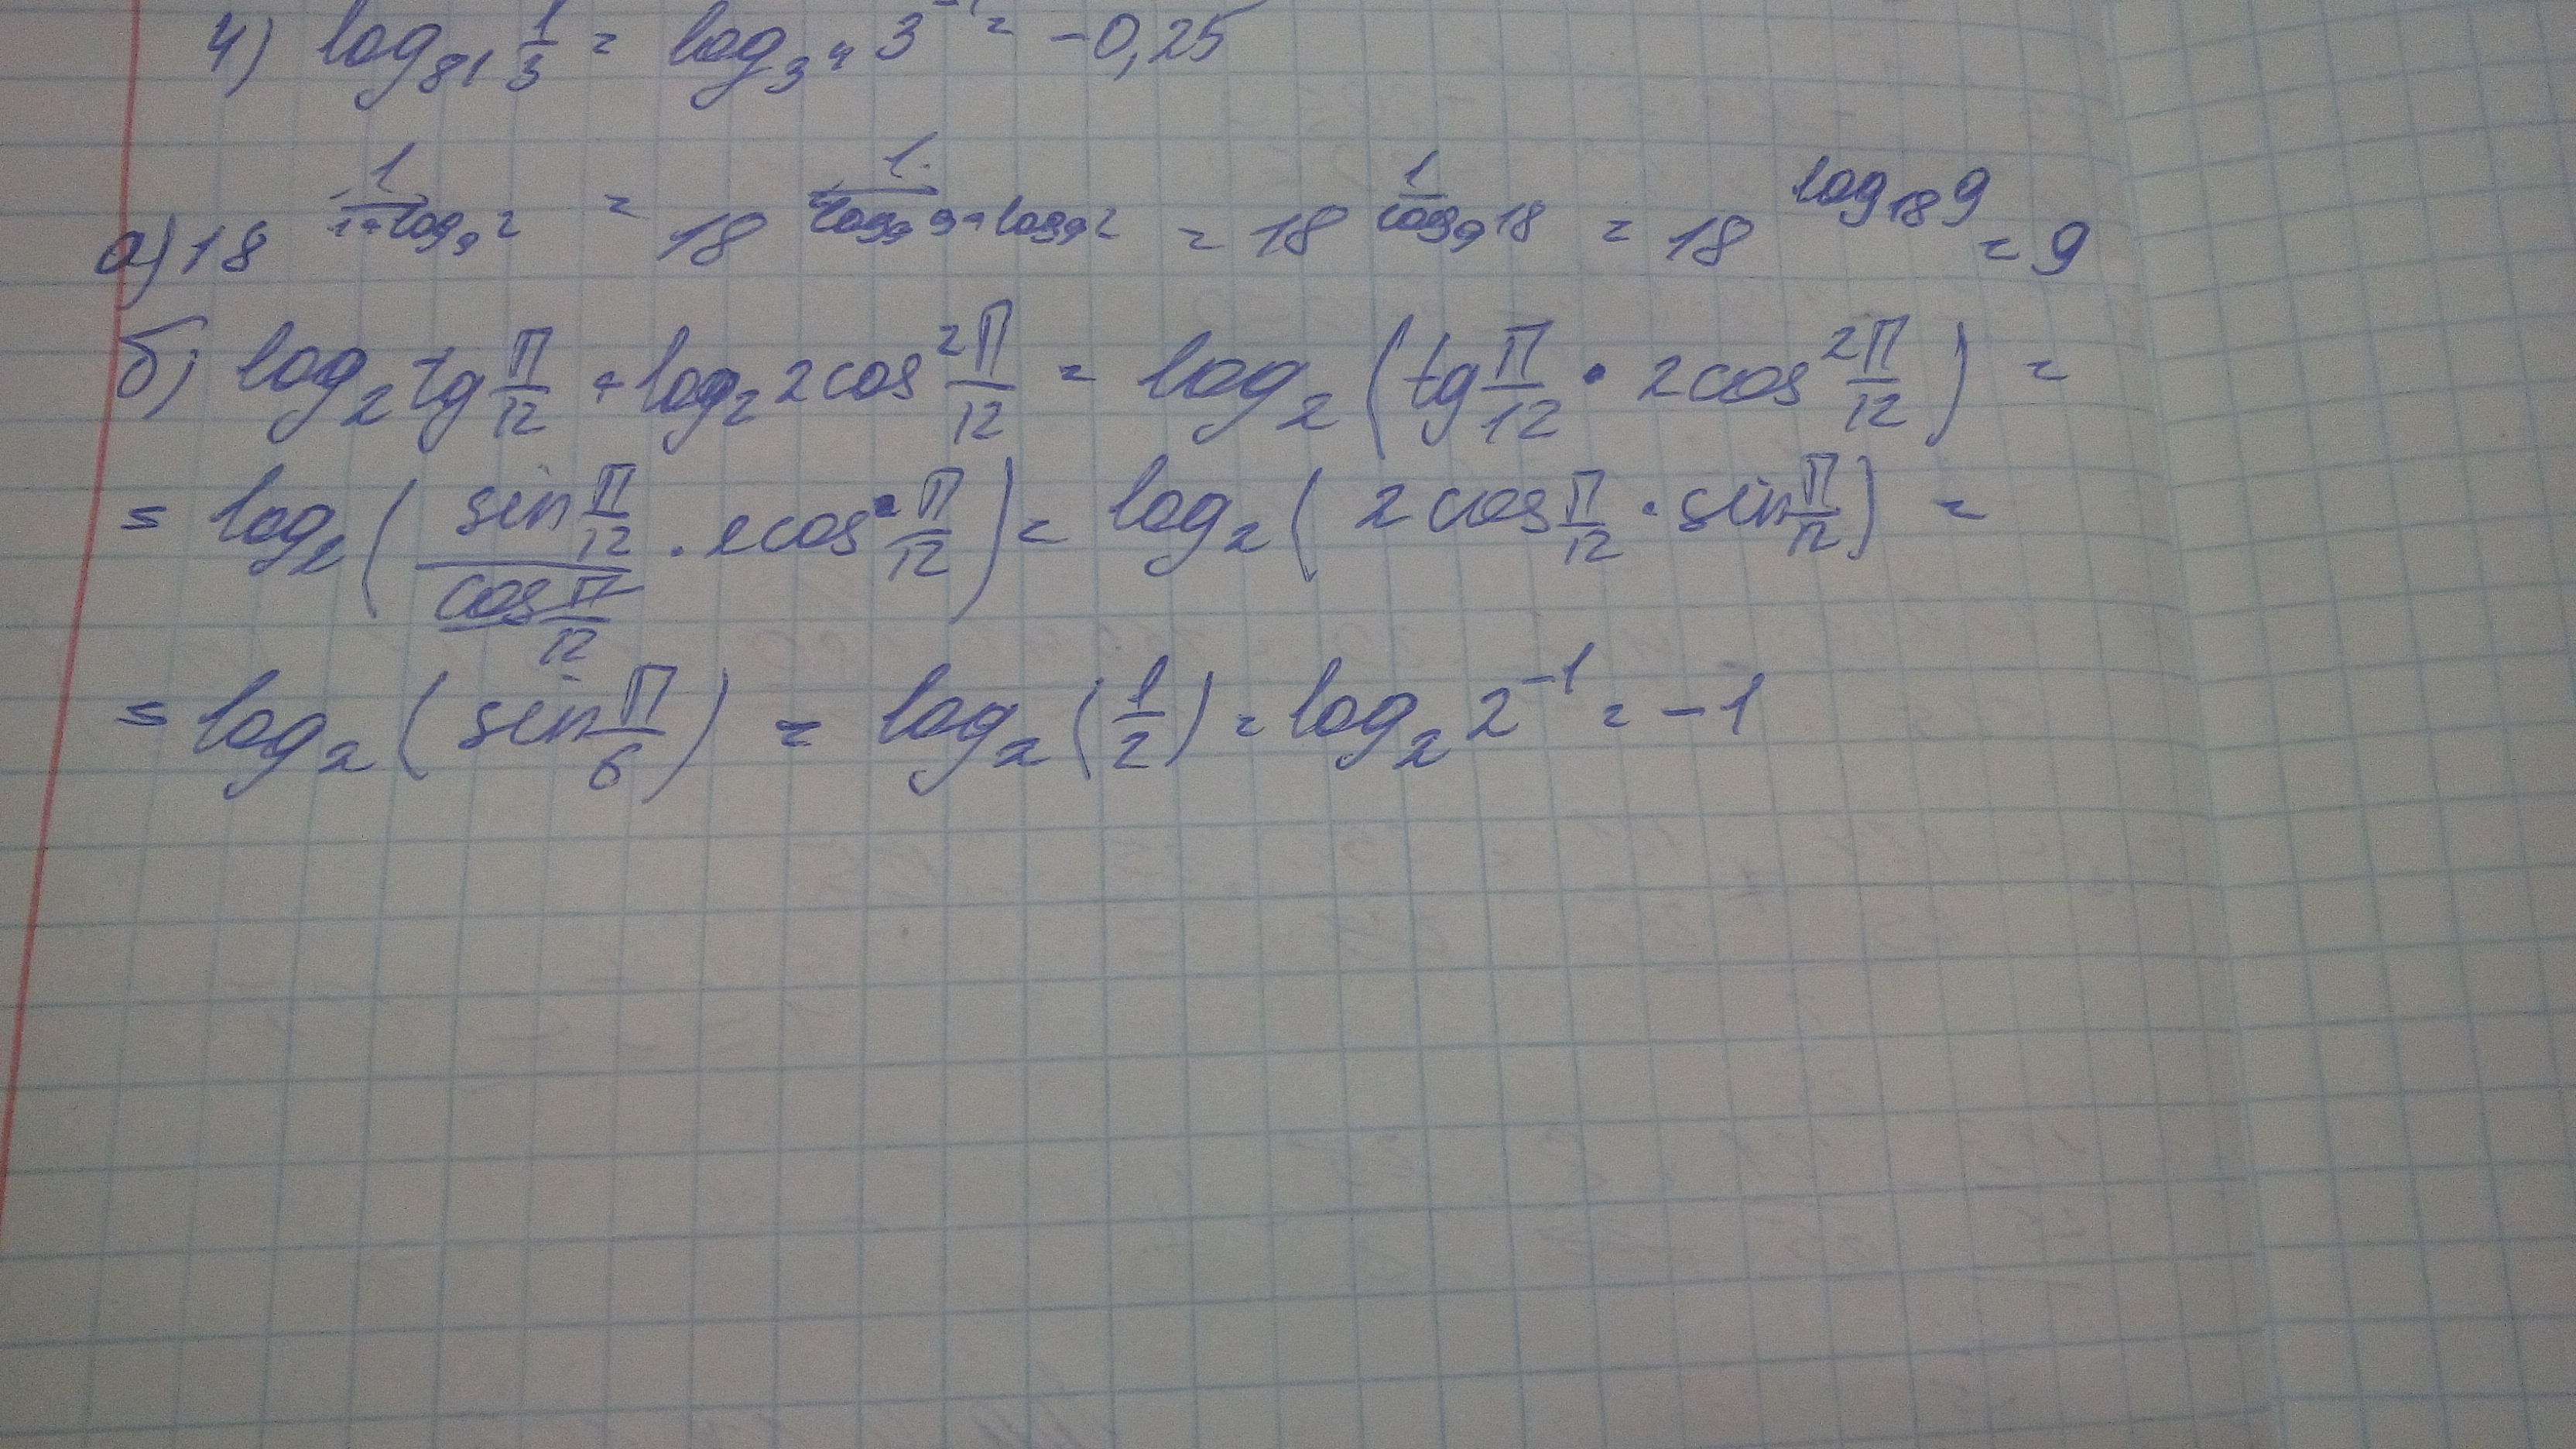 4) log₈₁ 1/3 = log₃⁴ 3⁻¹ = -0,25
а) 18^(1/(1+log₉ 2)) = 18^(1/(log₉ 9+log₉ 2)) = 18^(1/(log₉ 18)) = 18^(log₁₈ 9) = 9
б) log₂ tg π/12 + log₂ 2cos² π/12 = log₂ (tg π/12 · 2cos² π/12) =
= log₂ ((sin π/12)/(cos π/12) · 2cos² π/12) = log₂ (2cos π/12 · sin π/12) =
= log₂ (sin π/6) = log₂ (1/2) = log₂ 2⁻¹ = -1